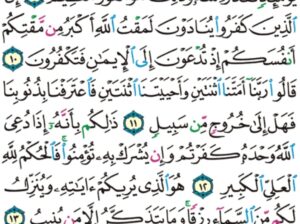 الَّذِينَ كَفَرُوا۟ يُنَادَوْنَ لَمَقْتُ اللَّهِ أَكْبَرُ مِن مَّقْتِكُمْ
أَنفُسَكُمْ إِذْ تُدْعَوْنَ إِلَى الْإِيمَٰنِ فَتَكْفُرُونَ ١٠
قَالُوا۟ رَبَّنَآ أَمَتَّنَا اثْنَتَيْنِ وَأَحْيَيْتَنَا اثْنَتَيْنِ فَاعْتَرَفْنَا بِذُنُوبِنَا
فَهَلْ إِلَىٰ خُرُوجٍ مِّن سَبِيلٍ ١١ ذَٰلِكُم بِأَنَّهُۥٓ إِذَا دُعِىَ
اللَّهُ وَحْدَهُۥ كَفَرْتُمْ وَإِن يُشْرَكْ بِهِۦ تُؤْمِنُوا۟ فَالْحُكْمُ لِلَّهِ
الْعَلِىِّ الْكَبِيرِ ١٢ هُوَ الَّذِى يُرِيكُمْ ءَايَٰتِهِۦ وَيُنَزِّلُ
لَكُم مِّنَ السَّمَآءِ رِزْقًا وَمَا يَتَذَكَّرُ إِلَّا مَن يُنِيبُ ١٣